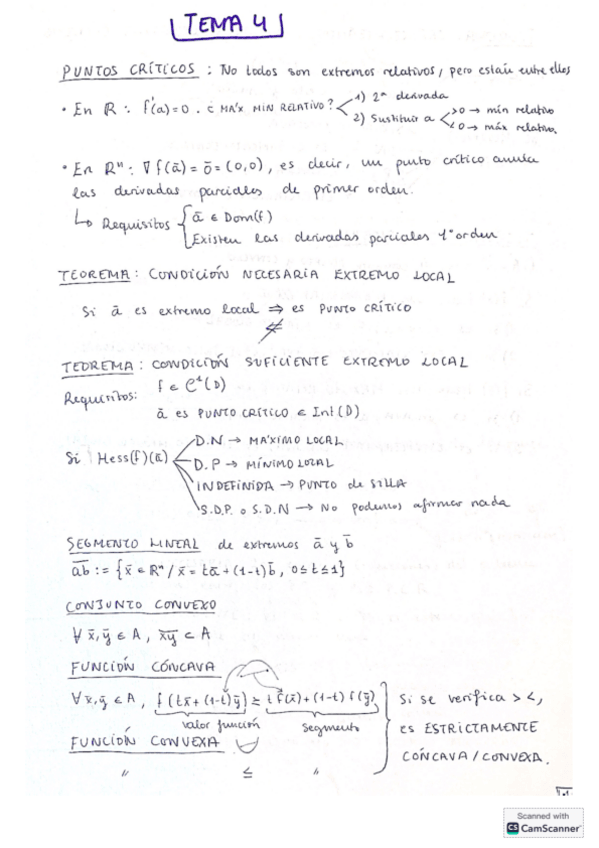 TEMA 4
PUNTOS CRÍTICOS : No todos son extremos relativos, pero están entre ellos
• En ℝ : f'(a)=0. ¿MÁX MIN RELATIVO? 1) 2ª derivada
2) Sustituir a >0 → mín relativo
<0 → máx relativo.
• En ℝⁿ : ∇f(ā) = ō = (0,0), es decir, un punto crítico anula
las derivadas parciales de primer orden.
↳ Requisitos { ā ∈ Dom(f)
Existen las derivadas parciales 1º orden
TEOREMA : CONDICIÓN NECESARIA EXTREMO LOCAL
Si ā es extremo local ⇒ es PUNTO CRÍTICO
⇍
TEOREMA : CONDICIÓN SUFICIENTE EXTREMO LOCAL
Requisitos: f ∈ C¹(D)
ā es PUNTO CRÍTICO ∈ Int(D)
Si Hess(f)(ā) D.N. → MÁXIMO LOCAL
D.P → MÍNIMO LOCAL
INDEFINIDA → PUNTO de SILLA
S.D.P. o S.D.N → No podemos afirmar nada
SEGMENTO LINEAL de extremos ā y b̄
ab := {x̄ ∈ ℝⁿ / x̄ = tā + (1-t)b̄, 0≤t≤1}
CONJUNTO CONVEXO
∀ x̄,ȳ ∈ A, xy ⊂ A
FUNCIÓN CÓNCAVA
∀ x̄,ȳ ∈ A, f(tx̄ + (1-t)ȳ) ≥ t f(x̄) + (1-t) f(ȳ)
valor función segmento
FUNCIÓN CONVEXA
" ≤ "
Si se verifica > <,
es ESTRICTAMENTE
CÓNCAVA / CONVEXA.
Scanned with
CS CamScanner